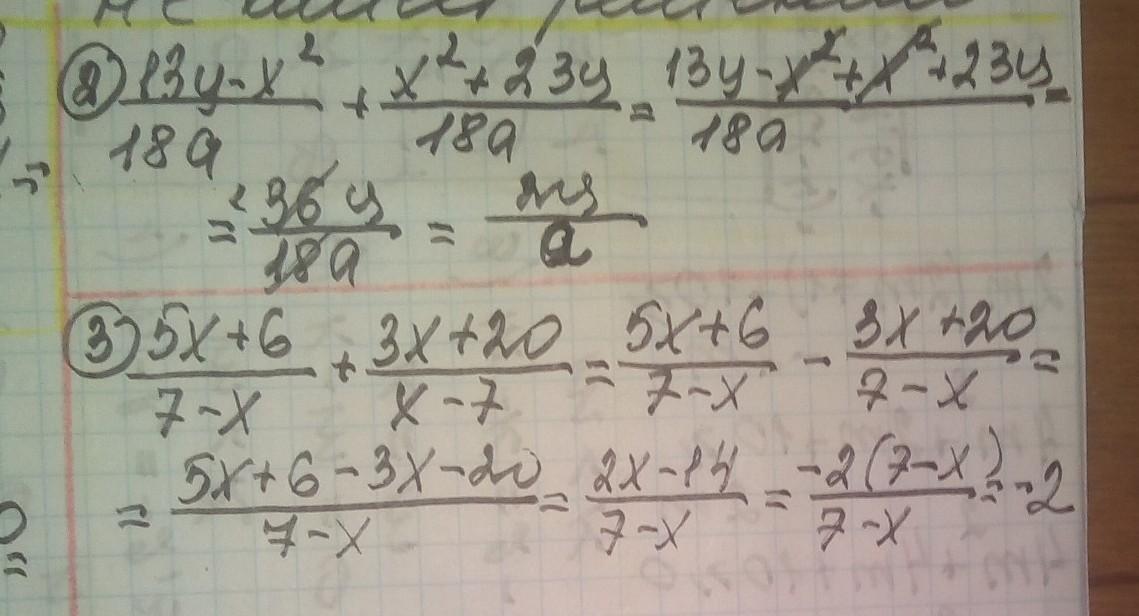 2) (13y-x²)/(18a) + (x²+23y)/(18a) = (13y-x²+x²+23y)/(18a) =
= (36y)/(18a) = (2y)/a
3) (5x+6)/(7-x) + (3x+20)/(x-7) = (5x+6)/(7-x) - (3x+20)/(7-x) =
= (5x+6-3x-20)/(7-x) = (2x-14)/(7-x) = (-2(7-x))/(7-x) = -2